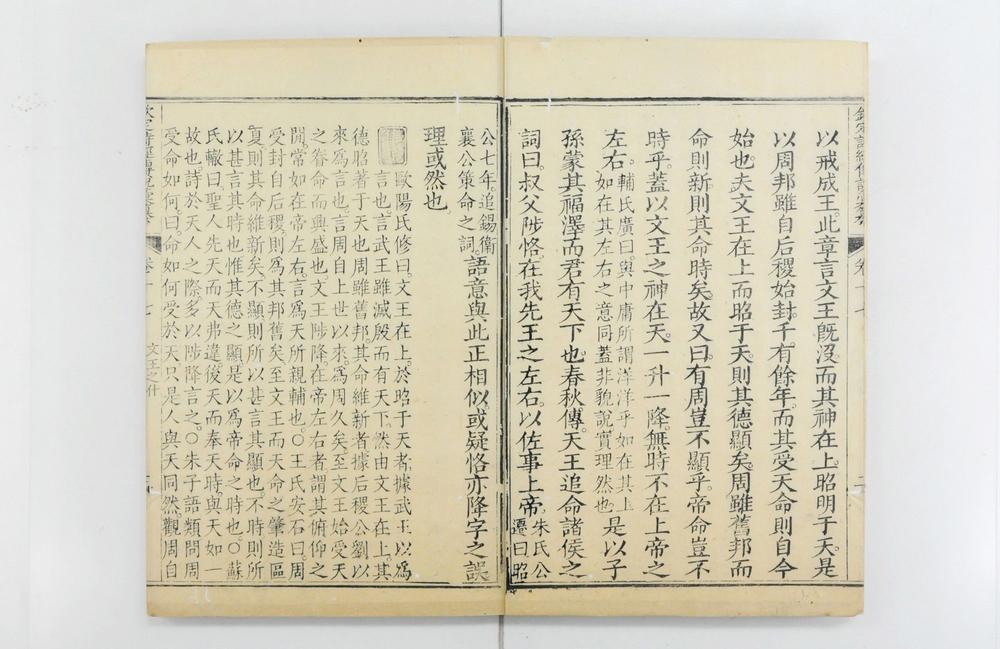 以戒成王此章言文王既沒而其神在上昭明于天是
以周邦雖自后稷始封千有餘年而其受天命則自今
始也夫文王在上而昭于天則其德顯矣周雖舊邦而
命則新則其命時矣故又曰有周豈不顯乎帝命豈不
時乎蓋以文王之神在天一升一降無時不在上帝之
左右輔氏廣曰與中庸所謂洋洋乎如在其上如在其左右之意同蓋非貌說實理然也是以子
孫蒙其福澤而君有天下也春秋傳天王追命諸侯之
詞曰叔父陟恪在我先王之左右以佐事上帝朱氏公遷曰昭
公七年追錫衛襄公策命之詞語意與此正相似或疑恪亦降字之誤
理或然也
歐陽氏修曰文王在上於昭于天者據武王以為
言也言武王雖滅殷而有天下然由文王在上其
德昭著于天也周雖舊邦其命維新者據后稷公劉以
來為言也言周自上世以來為周久矣至文王始受天
之眷命而興盛也文王陟降在帝左右者謂其俯仰之
閒常如在帝左右言為天所親輔也○王氏安石曰周
受封自后稷則為其邦舊矣至文王而天命之肇造區
夏則其命維新矣不顯則所以甚言其顯也不時則所
以甚言其時也惟其德之顯是以為帝命之時也○蘇
氏轍曰聖人先天而天弗違後天而奉天時與天如一
故也詩於天人之際多以陟降言之○朱子語類問周
受命如何曰命如何受於天只是人與天同然觀周自
卷十七